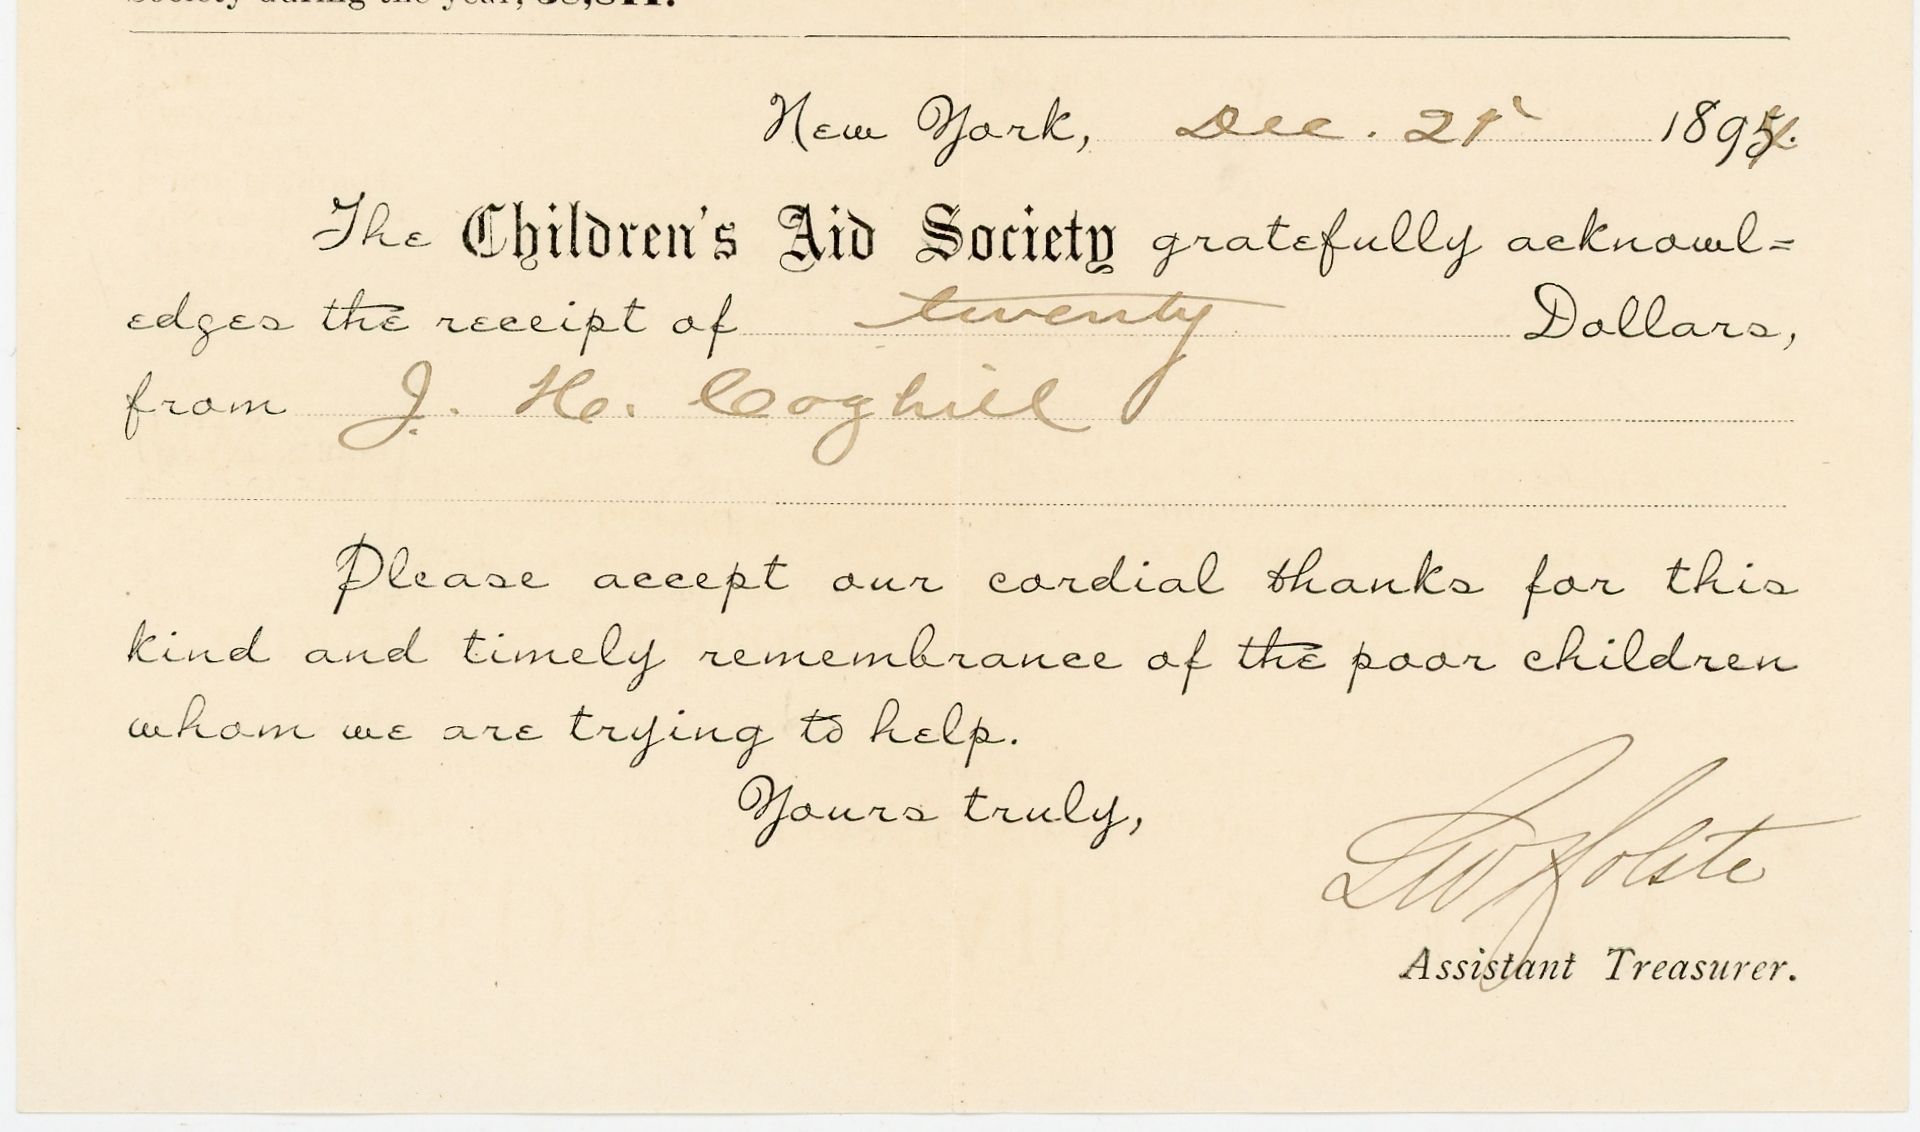 Society during the year,
New York, Dec. 21 189
The Children's Aid Society gratefully acknowl=
edges the receipt of twenty Dollars,
from J. H. Coghill
Please accept our cordial thanks for this
kind and timely remembrance of the poor children
whom we are trying to help.
Yours truly,
Holste
Assistant Treasurer.